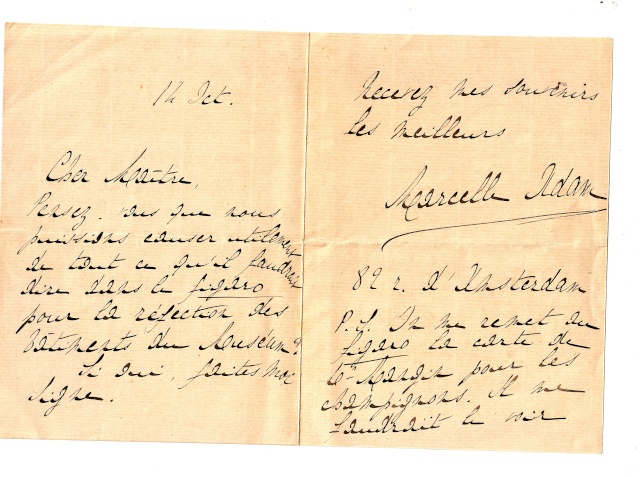 14 Oct.
Cher Maître,
Pensez-vous que nous
puissions causer utilement
de tout ce qu'il faudrait
dire dans le figaro
pour la réfection des
bâtiments du Muséum ?
Si oui, faites moi
signe.
Recevez mes souvenirs
les meilleurs
Marcelle Adam
82 r. d'Amsterdam
P.S. On me remet au
figaro la carte de
Mangin pour les
champignons. Il me
faudrait le voir